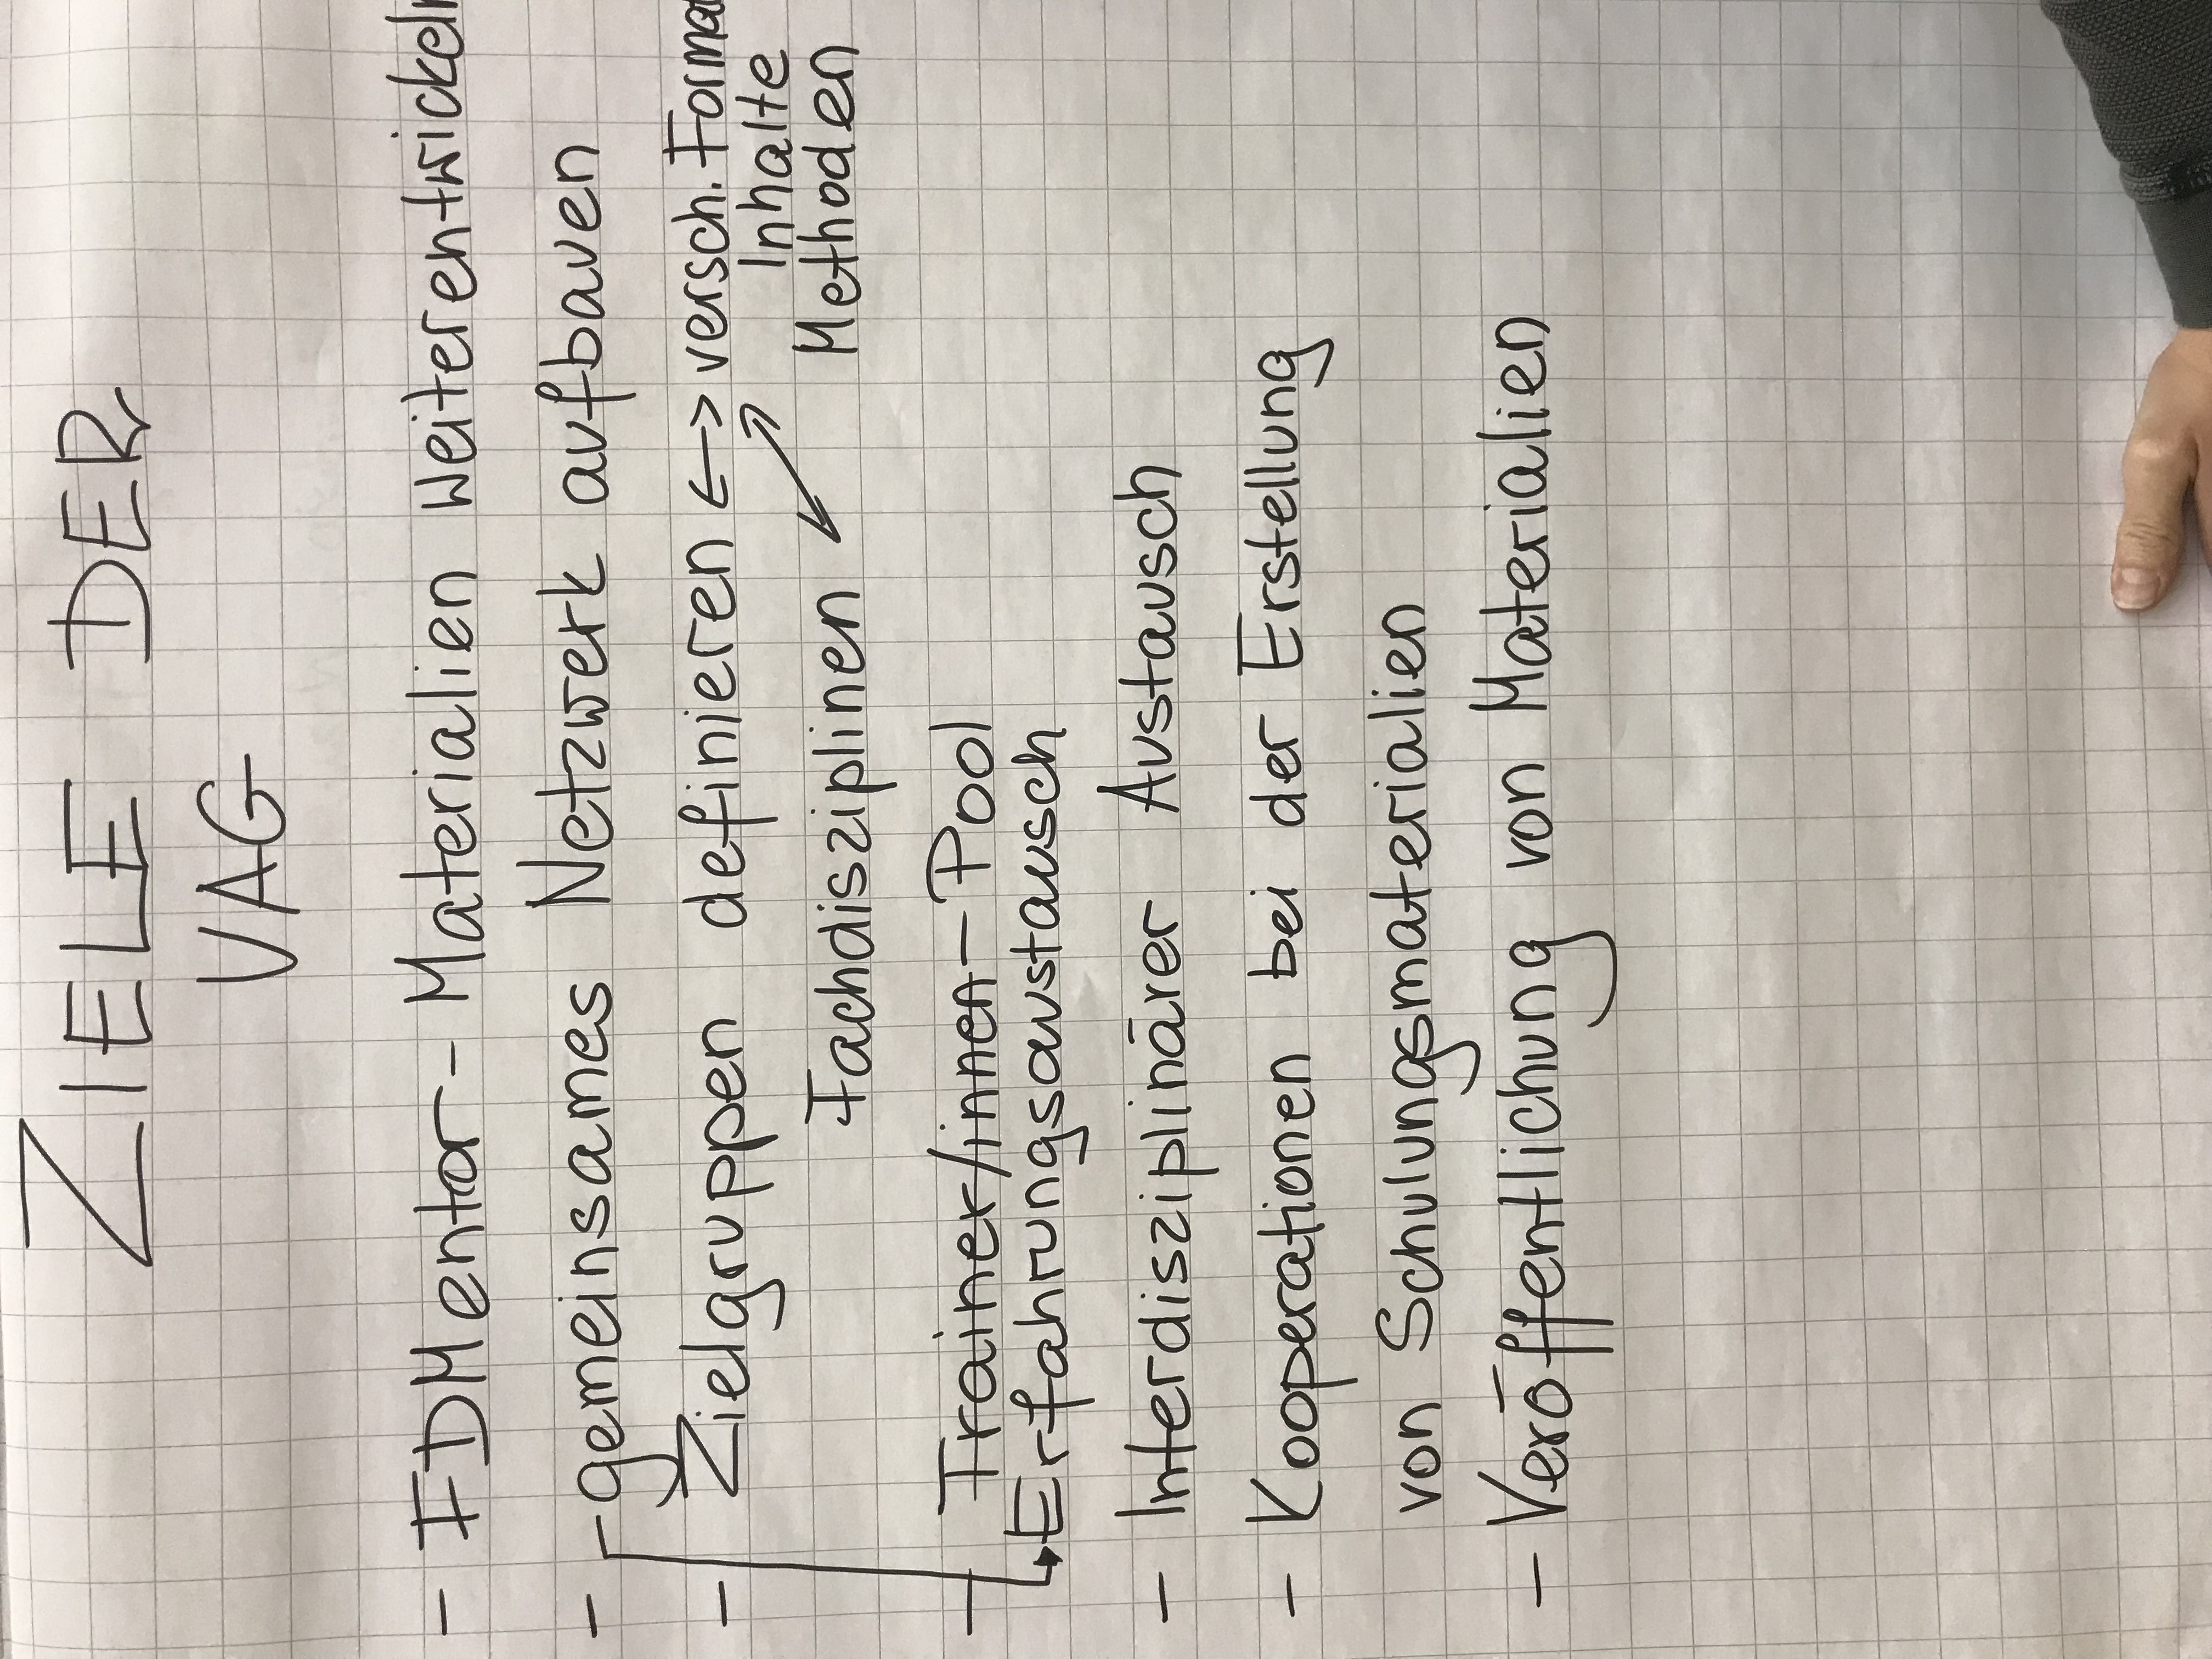 ZIELE DER
VAG
- FDMentor- Materialien weiterentwickeln
- gemeinsames Netzwerk aufbauen
- Zielgruppen definieren <-> versch. Forma
Inhalte
Fachdisziplinen Methoden
- Trainer/innen-Pool
Erfahrungsaustausch
- Interdisziplinärer Austausch
- Kooperationen bei der Erstellung
von Schulungsmaterialien
- Veröffentlichung von Materialien